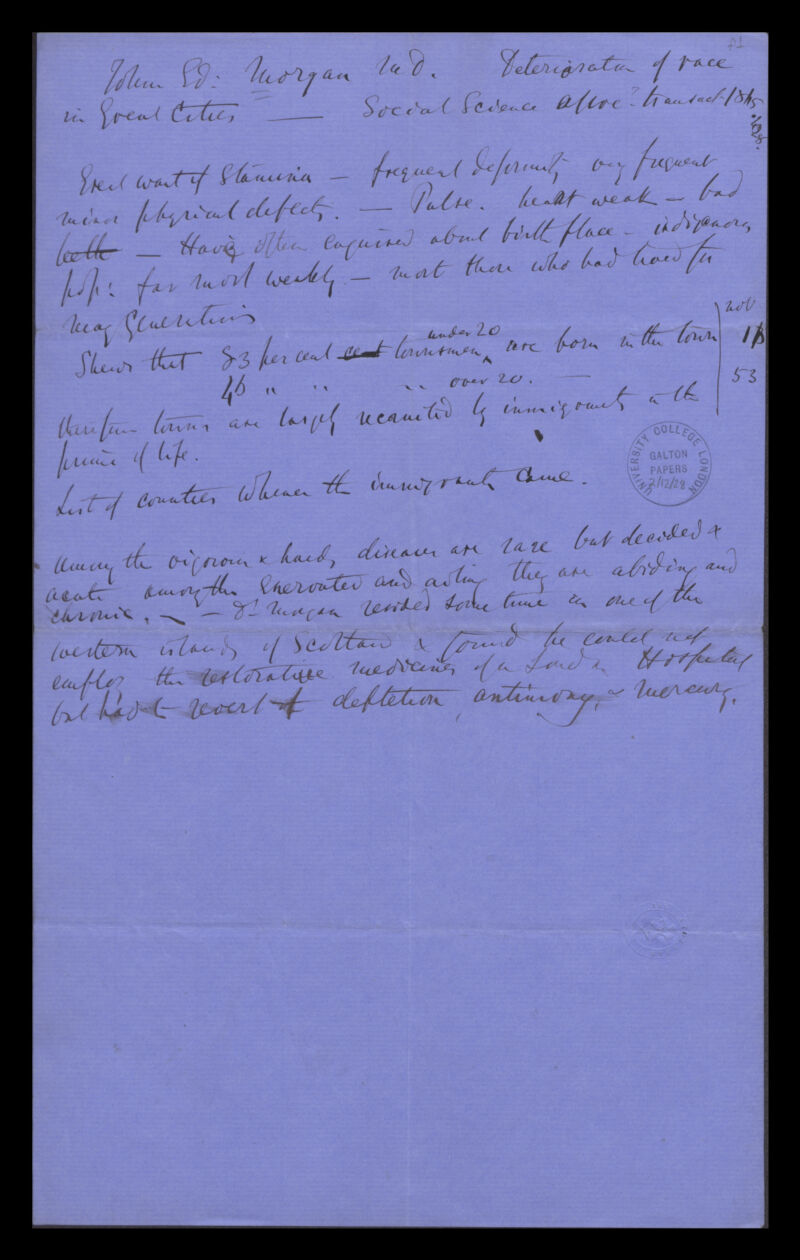 John Ed: Morgan M D. Deterioration of race
in Great Cities — Social Science Assoc? transact/
Great want of Stamina — frequent deformity very frequent
minor physical defects. — Pulse. heart weak — bad
teeth — Having often enquired about birth place — indigenous
pop: far most weakly — most those who had lived for
many Generations
Shews that 83 per cent cent townsmen under 20 are born in the town
" " " over 20. —
not
53
therefore towns are largely recruited by immigrants in the
prime of life.
List of counties whence the immigrants came.
Among the vigorous & hardy diseases are rare but decided &
acute among the Enervated and ailing they are abiding and
chronic. — — Dr Morgan resided some time in one of the
western islands of Scotland & found he could not
employ the restorative medicines of a London Hospital
but had to revert to depletion, antimony, & mercury.
UNIVERSITY COLLEGE LONDON
GALTON
PAPERS
2/12/28